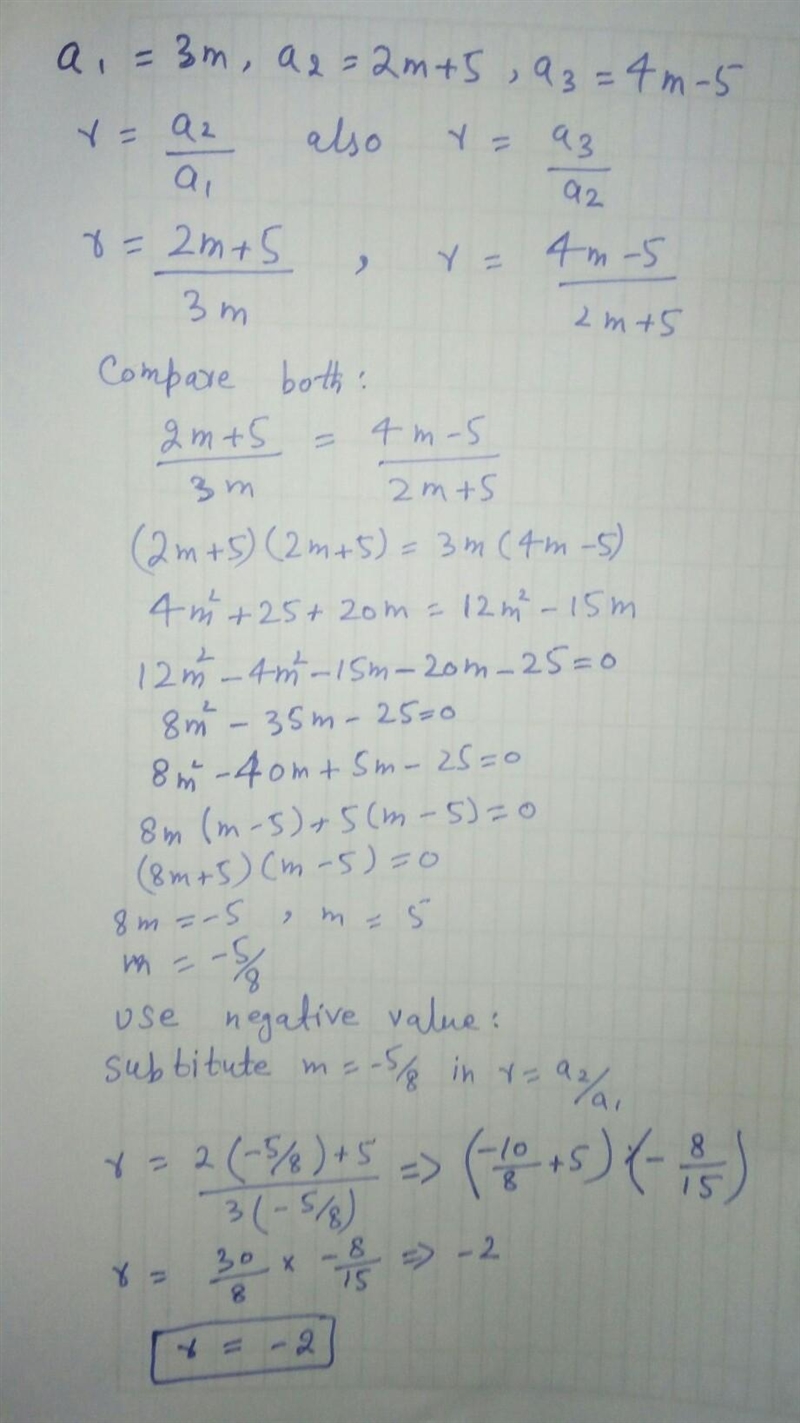 a₁ = 3m, a₂ = 2m+5, a₃ = 4m-5
r = a₂/a₁ also r = a₃/a₂
r = (2m+5)/(3m), r = (4m-5)/(2m+5)
Compare both:
(2m+5)/(3m) = (4m-5)/(2m+5)
(2m+5)(2m+5) = 3m(4m-5)
4m² + 25 + 20m = 12m² - 15m
12m² - 4m² - 15m - 20m - 25 = 0
8m² - 35m - 25 = 0
8m² - 40m + 5m - 25 = 0
8m(m-5) + 5(m-5) = 0
(8m+5)(m-5) = 0
8m = -5, m = 5
m = -5/8
use negative value:
substitute m = -5/8 in r = a₂/a₁
r = (2(-5/8)+5)/(3(-5/8)) => (-10/8 + 5)·(-8/15)
r = 30/8 × -8/15 => -2
r = -2